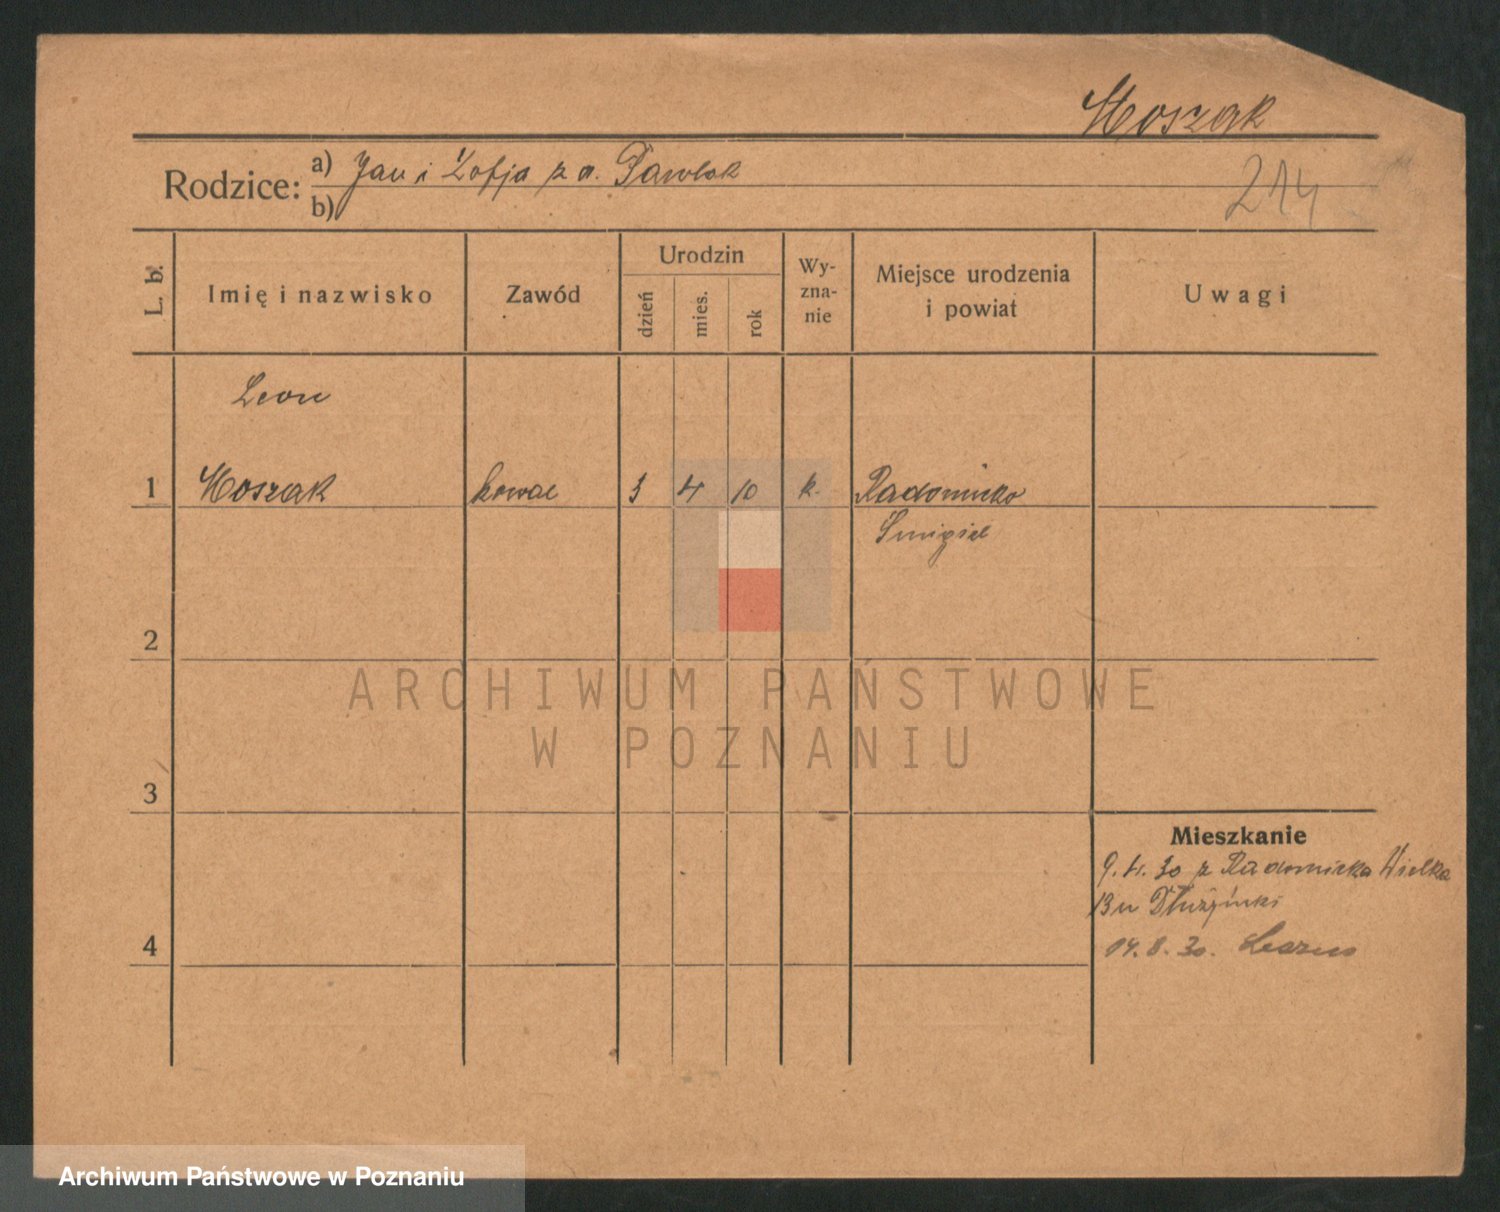 Moszak
Rodzice: a) Jan i Zofja z d. Pawlak
b)
214
L. b.
Imię i nazwisko
Zawód
Urodzin
dzień
mies.
rok
Wy-
zna-
nie
Miejsce urodzenia
i powiat
Uwagi
Leon
1 Moszak kowal 3 4 10 k. Radomicko
Śmigiel
2
3
4
Mieszkanie
9.4.30 z Radomicka Wielka
13 u Dłużyński
14.8.30. Leszno
ARCHIWUM PAŃSTWOWE
W POZNANIU
Archiwum Państwowe w Poznaniu